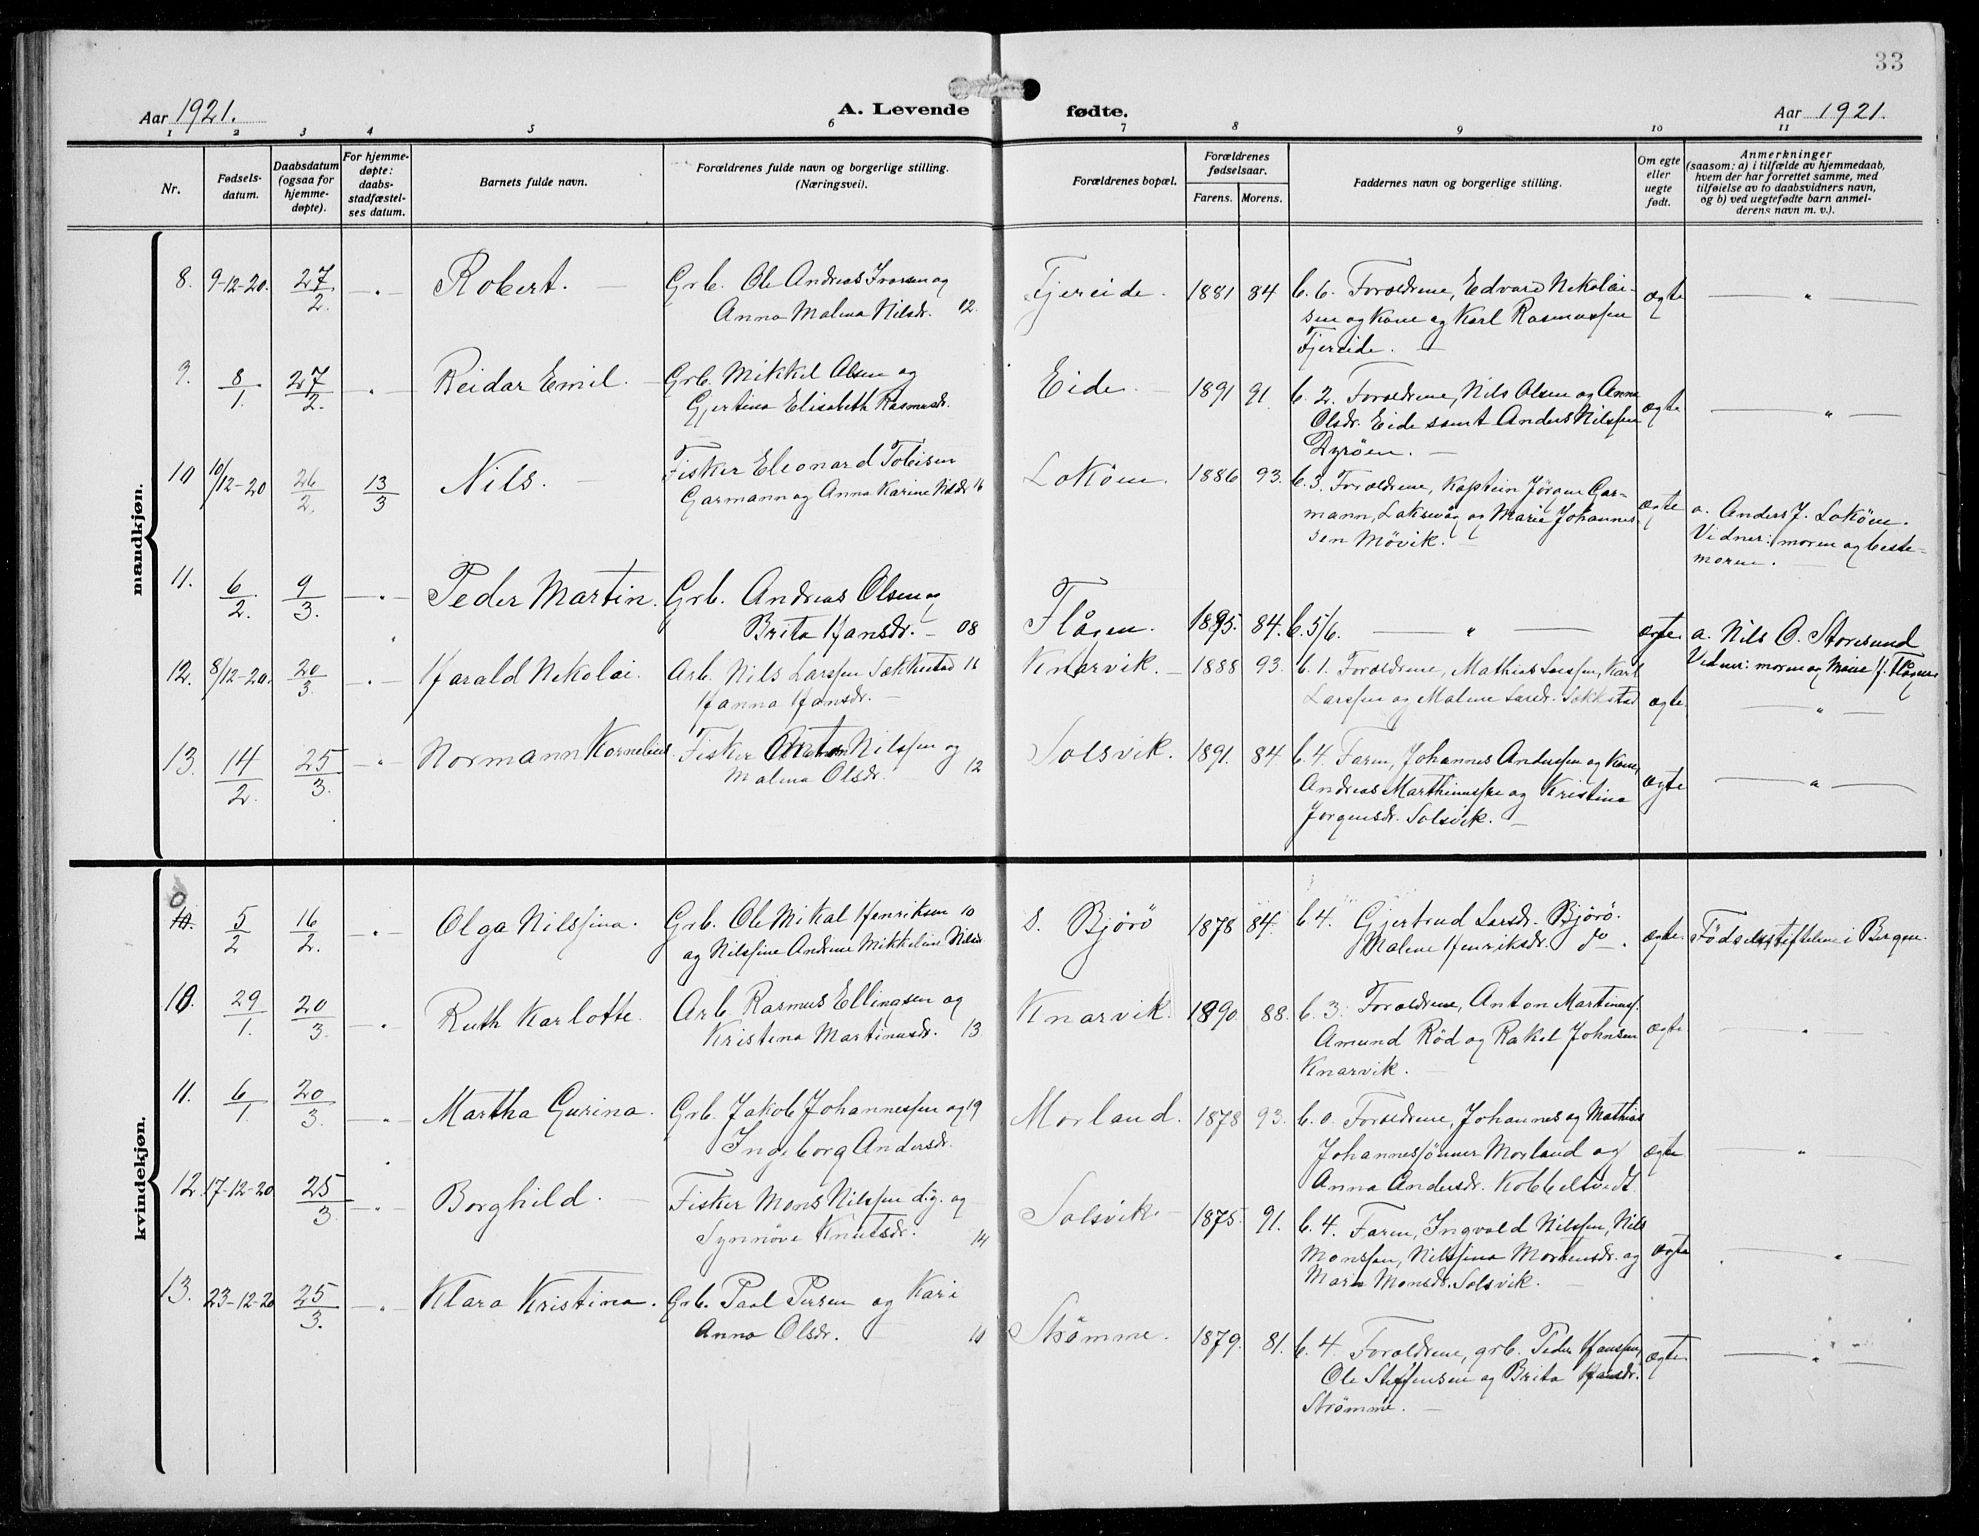 33
Aar 1921. A. Levende fødte. Aar 1921.
1 2 3 4 5 6 7 8 9 10 11
Nr.
Fødsels-
datum.
Daabsdatum
(ogsaa for
hjemme-
døpte).
For hjemme-
døpte:
daabs-
stadfæstel-
ses datum.
Barnets fulde navn.
Forældrenes fulde navn og borgerlige stilling.
(Næringsvei).
Forældrenes bopæl.
Forældrenes
fødselsaar.
Farens. Morens.
Faddernes navn og borgerlige stilling.
Om egte
eller
uegte
født.
Anmerkninger
(saasom: a) i tilfælde av hjemmedaab,
hvem der har forrettet samme, med
tilføielse av to daabsvidners navn,
og b) ved uegtefødte barn anmel-
derens navn m. v.).
mandkjøn.
8. 9-12-20. 27/2. — Robert. — Grb. Ole Andreas Ivarsen og
Anna Malena Nilsdr. 12.
Fjereide. 1881 84 b. 6. Forældrene, Edvard Nikolai-
sen og Kone og Karl Rasmussen
Fjereide. —
ægte — " —
9. 8/1 27/2. — Reidar Emil. — Grb. Mikkel Olsen og
Gjertina Elisabeth Rasmusdr.
Eide. — 1891 91. b. 2. Forældrene, Nils Olsen og Anna
Olsdr. Eide samt Anders Nilssen
Dyrøen. —
ægte — " —
10 10/12-20 26/2. 13/3 Nils. — Fisker Eleonard Tobisen
Garmann og Anna Karine Nilsdr 16
Lokøen. 1886 93. b. 3. Forældrene, Kaptein Jørgen Gar-
mann, Laksevåg og Marie Johannes-
sen Møvik. —
ægte a. Anders J. Lokøen.
Vidner: moren og beste-
moren. —
11. 6/2. 9/3. — Peder Martin. Grb. Andreas Olsen og
Brita Hansdr. — 08
Flågen. 1895. 84. b. 5/6. — " —
ægte a. Nils O. Storesund
Vidner: moren og Marie J. Flågen
12. 8/12-20. 20/3 — Harald Nikolai. Arb. Nils Larssen Sækkestad 16
Hanna Hansdr. —
Knarvik. — 1888 93. b. 1. Forældrene, Mathias Larssen, Karl
Larssen og Malene Larsdr. Sækkestad
ægte. — " —
13. 14/2. 25/3. — Normann Kornelius Fisker Anton Nilssen og
Malena Olsdr. 12
Solsvik. 1891. 84 b. 4. Faren, Johannes Anderssen og Kone,
Andreas Marthinussen og Kristina
Jørgensdr. Solsvik. —
ægte — " —
kvindekjøn.
5/2 16/2. — Olga Nilssina. Grb. Ole Mikal Henriksen 10
og Nilssine Andrine Mikkeline Nilsdr
S. Bjørø 1878 84. b. 4. Gjertrud Larsdr. Bjørø.
Malene Henriksdr. do.
ægte. Fødselsstiftelsen i Bergen.
10. 29/1. 20/3. — Ruth Karlotte. Arb. Rasmus Ellingsen og
Kristena Martinusdr. 13
Knarvik. 1890 88. b. 3. Forældrene, Anton Martinuss.
Amund Rød og Rakel Johnsen
Knarvik. —
ægte "
11. 6/1. 20/3. — Martha Gurina. Grb. Jakob Johannessen og 19
Ingeborg Andersdr.
Morland. 1878 93. b. 0. Forældrene, Johannes og Mathias
Johannessønner Morland og
Anna Andersdr. Kobbeltvedt.
ægte "
12 17-12-20 25/3. — Borghild. — Fisker Mons Nilssen dig. og
Synnøve Knutsdr. 14
Solsvik. — 1875. 91. b. 4. Faren, Ingvald Nilssen, Nils
Monssen, Nilssina Mortensdr. og
Marie Monsdr. Solsvik. —
ægte "
13. 23-12-20 25/3. — Klara Kristina. Grb. Paal Persen og Kari
Anna Olsdr. — 10
Strømme. 1879. 81. b. 4. Forældrene, grb. Peder Hanssen,
Ole Steffensen og Brita Hansdr.
Strømme. —
ægte — " —